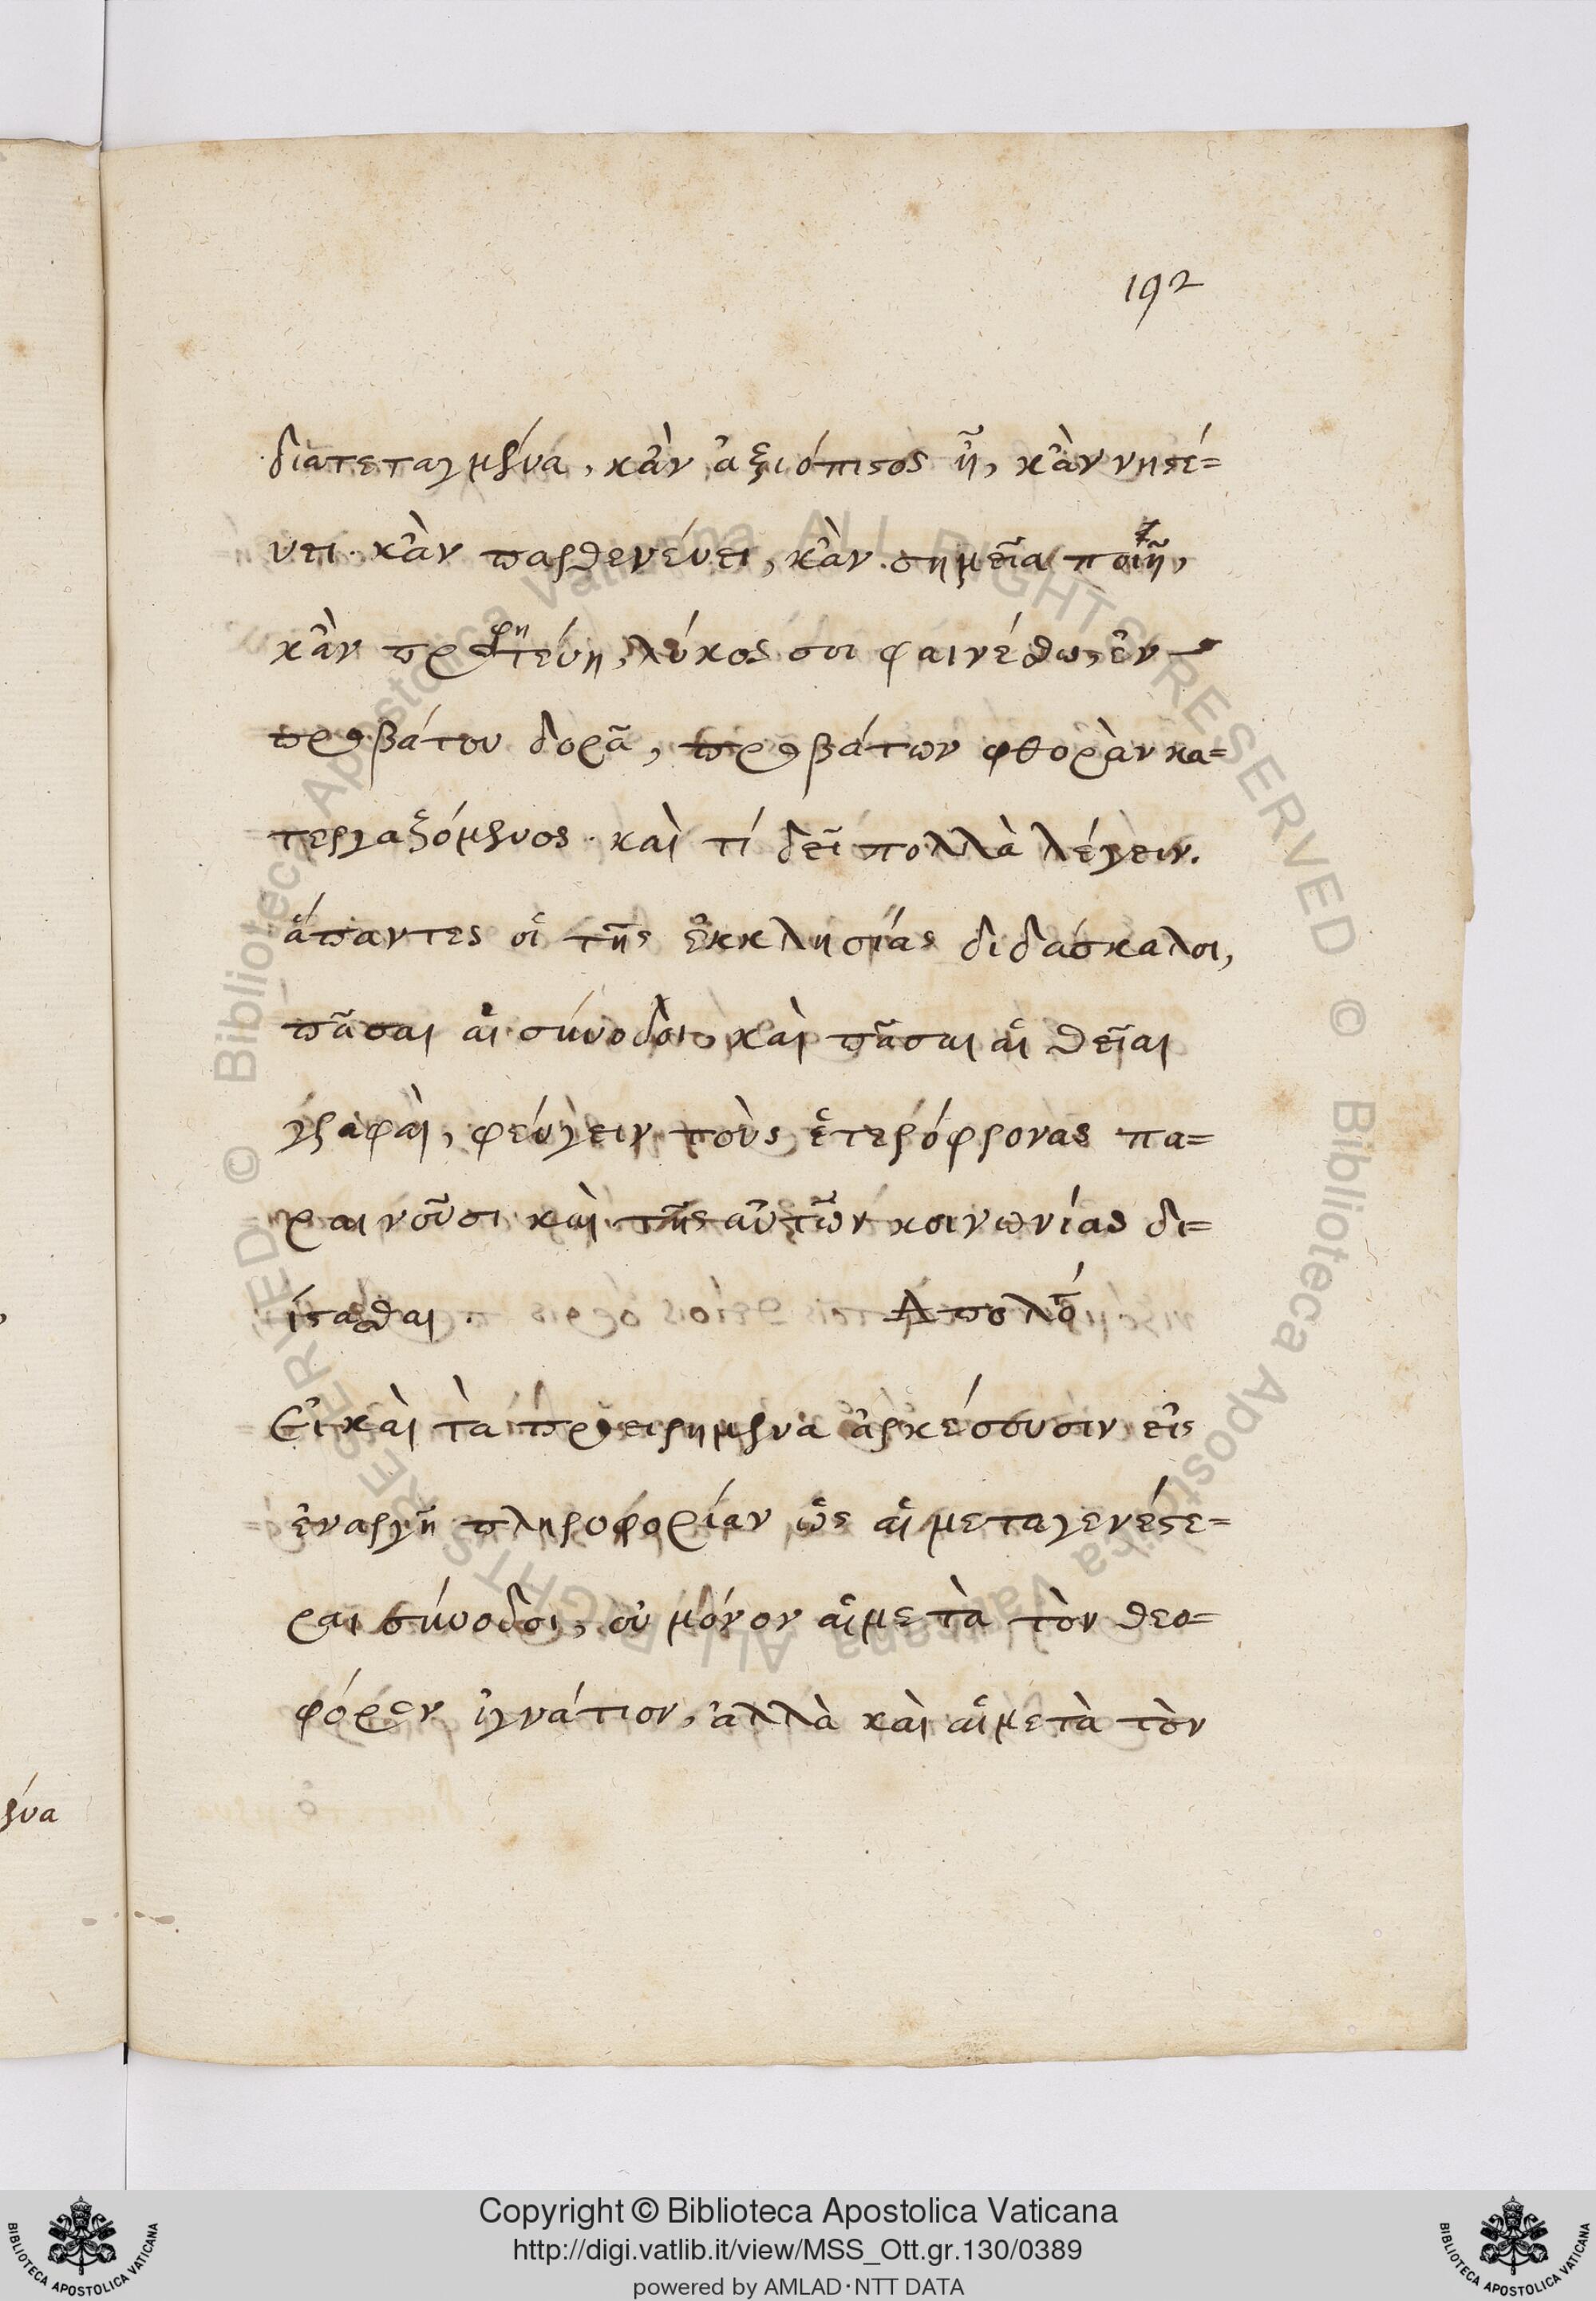 192
διατεταγμένα, κἂν ἀξιόπιστος ᾖ, κἂν νηστεύ=
υει. κἂν παρθενεύει, κἂν σημεῖα ποιῇ,
κἂν προφητεύῃ, λύκος σοι φαινέσθω, ἐν
προβάτου δορᾷ, προβάτων φθορὰν κα=
τεργαζόμενος. καὶ τί δεῖ πολλὰ λέγειν.
ἅπαντες οἱ τῆς ἐκκλησίας διδάσκαλοι,
πᾶσαι αἱ σύνοδοι, καὶ πᾶσαι αἱ θεῖαι
γραφαὶ, φεύγειν τοὺς ἑτερόφρονας πα=
ραινοῦσι καὶ τῆς αὐτῶν κοινωνίας δι=
ίστασθαι.
Εἰ καὶ τὰ προειρημένα ἀρκέσουσιν εἰς
ἐναργῆ πληροφορίαν ὡς αἱ μεταγενέστε=
ραι σύνοδοι, οὐ μόνον αἱ μετὰ τὸν θεο=
φόρον ἰγνάτιον, ἀλλὰ καὶ αἱ μετὰ τὸν
Copyright © Biblioteca Apostolica Vaticana
http://digi.vatlib.it/view/MSS_Ott.gr.130/0389
powered by AMLAD·NTT DATA
BIBLIOTECA APOSTOLICA VATICANA
BIBLIOTECA APOSTOLICA VATICANA
© Biblioteca Apostolica Vaticana ALL RIGHTS RESERVED
© Biblioteca Apostolica Vaticana ALL RIGHTS RESERVED